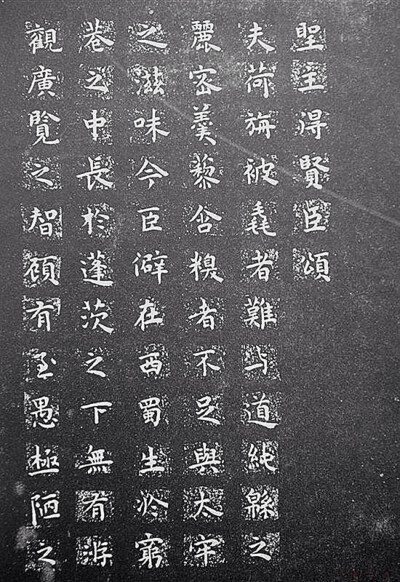 聖主得賢臣頌
夫荷旃被毳者難与道純緜之
麗密羹藜含糗者不足與大牢
之滋味今臣僻在西蜀生於窮
巷之中長於蓬茨之下無有游
觀廣覽之智顧有至愚極陋之